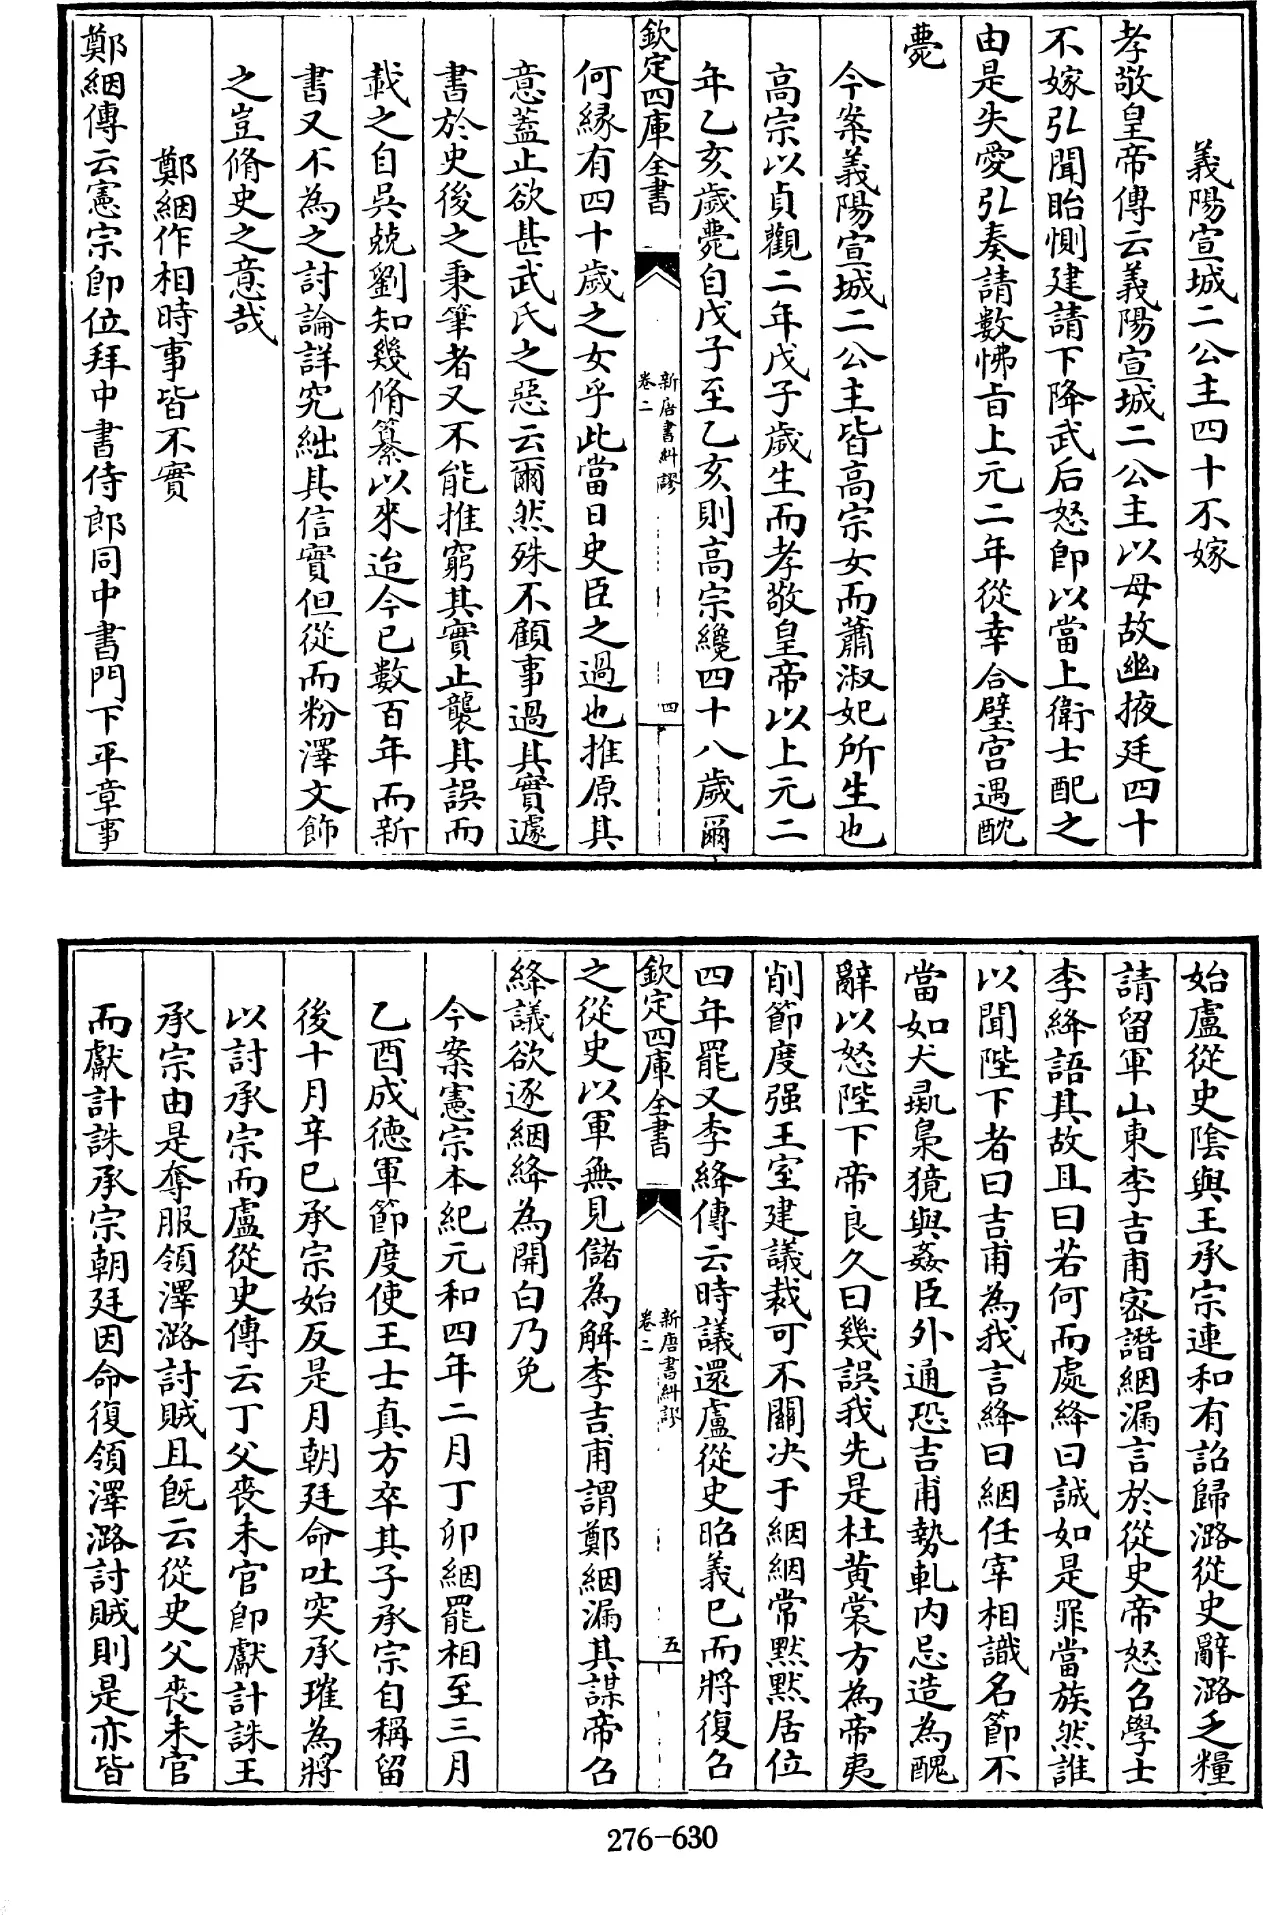 義陽宣城二公主四十不嫁
孝敬皇帝傳云義陽宣城二公主以母故幽掖廷四十
不嫁弘聞眙惻建請下降武后怒即以當上衛士配之
由是失愛弘奏請數怫㫖上元二年從幸合璧宫遇酖
薨
今案義陽宣城二公主皆高宗女而蕭淑妃所生也
高宗以貞觀二年戊子歲生而孝敬皇帝以上元二
年乙亥歲薨自戊子至乙亥則高宗纔四十八歲爾
欽定四庫全書
新唐書糾謬
卷二
四
何縁有四十歲之女乎此當日史臣之過也推原其
意蓋止欲甚武氏之惡云爾然殊不顧事過其實遽
書於史後之秉筆者又不能推窮其實止襲其誤而
載之自吳兢劉知幾脩纂以來迨今已數百年而新
書又不為之討論詳究絀其信實但從而粉澤文飾
之豈脩史之意哉
鄭絪作相時事皆不實
鄭絪傳云憲宗即位拜中書侍郎同中書門下平章事
始盧從史陰與王承宗連和有詔歸潞從史辭潞乏糧
請留軍山東李吉甫宻譖絪漏言於從史帝怒召學士
李絳語其故且曰若何而處絳曰誠如是罪當族然誰
以聞陛下者曰吉甫為我言絳曰絪任宰相識名節不
當如犬彘梟獍與姦臣外通恐吉甫勢軋内忌造為醜
辭以怒陛下帝良久曰幾誤我先是杜黄裳方為帝夷
削節度强王室建議裁可不關决于絪絪常黙黙居位
四年罷又李絳傳云時議還盧從史昭義已而將復召
欽定四庫全書
新唐書糾謬
卷二
五
之從史以軍無見儲為解李吉甫謂鄭絪漏其謀帝召
絳議欲逐絪絳為開白乃免
今案憲宗本紀元和四年二月丁卯絪罷相至三月
乙酉成徳軍節度使王士真方卒其子承宗自稱留
後十月辛巳承宗始反是月朝廷命吐突承璀為將
以討承宗而盧從史傳云丁父喪未官即獻計誅王
承宗由是奪服領澤潞討賊且既云從史父喪未官
而獻計誅承宗朝廷因命復領澤潞討賊則是亦皆
276-630